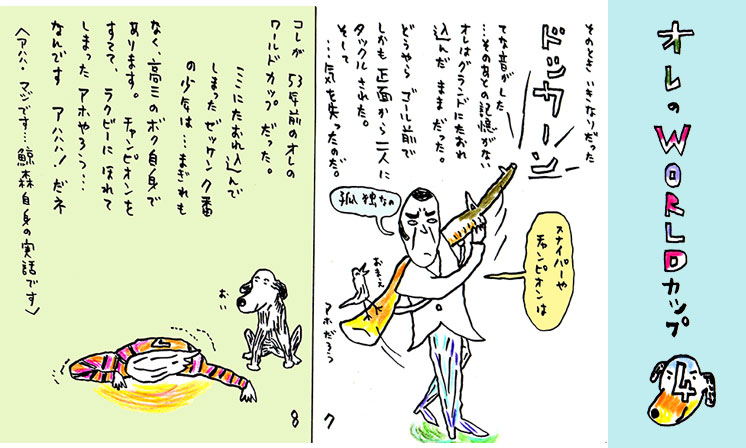 オレの WORLDカップ
4
そのとき いきなりだった
ドッカーン
てな音がした
…そのあとの記憶がない
オレはグランドにたおれ
込んだ ままだった。
どうやら ゴール前で
しかも正面から二人に
タックルされた。
そして
…気を失ったのだ。
孤独なの
スナイパーや
チャンピオンは
おまえ
アホだろう
7
コレが 53年前のオレの
ワールドカップ だった。
ここにたおれ込んで
しまったゼッケン 番
の少年は…まぎれも
なく、高三のボク自身で
あります。 チャンピオンを
すてて、ラグビーにほれて
しまった アホやろう…
なんです アハハハ! だネ
(アハハ・マジです…鯨森自身の実話です)
おい
8